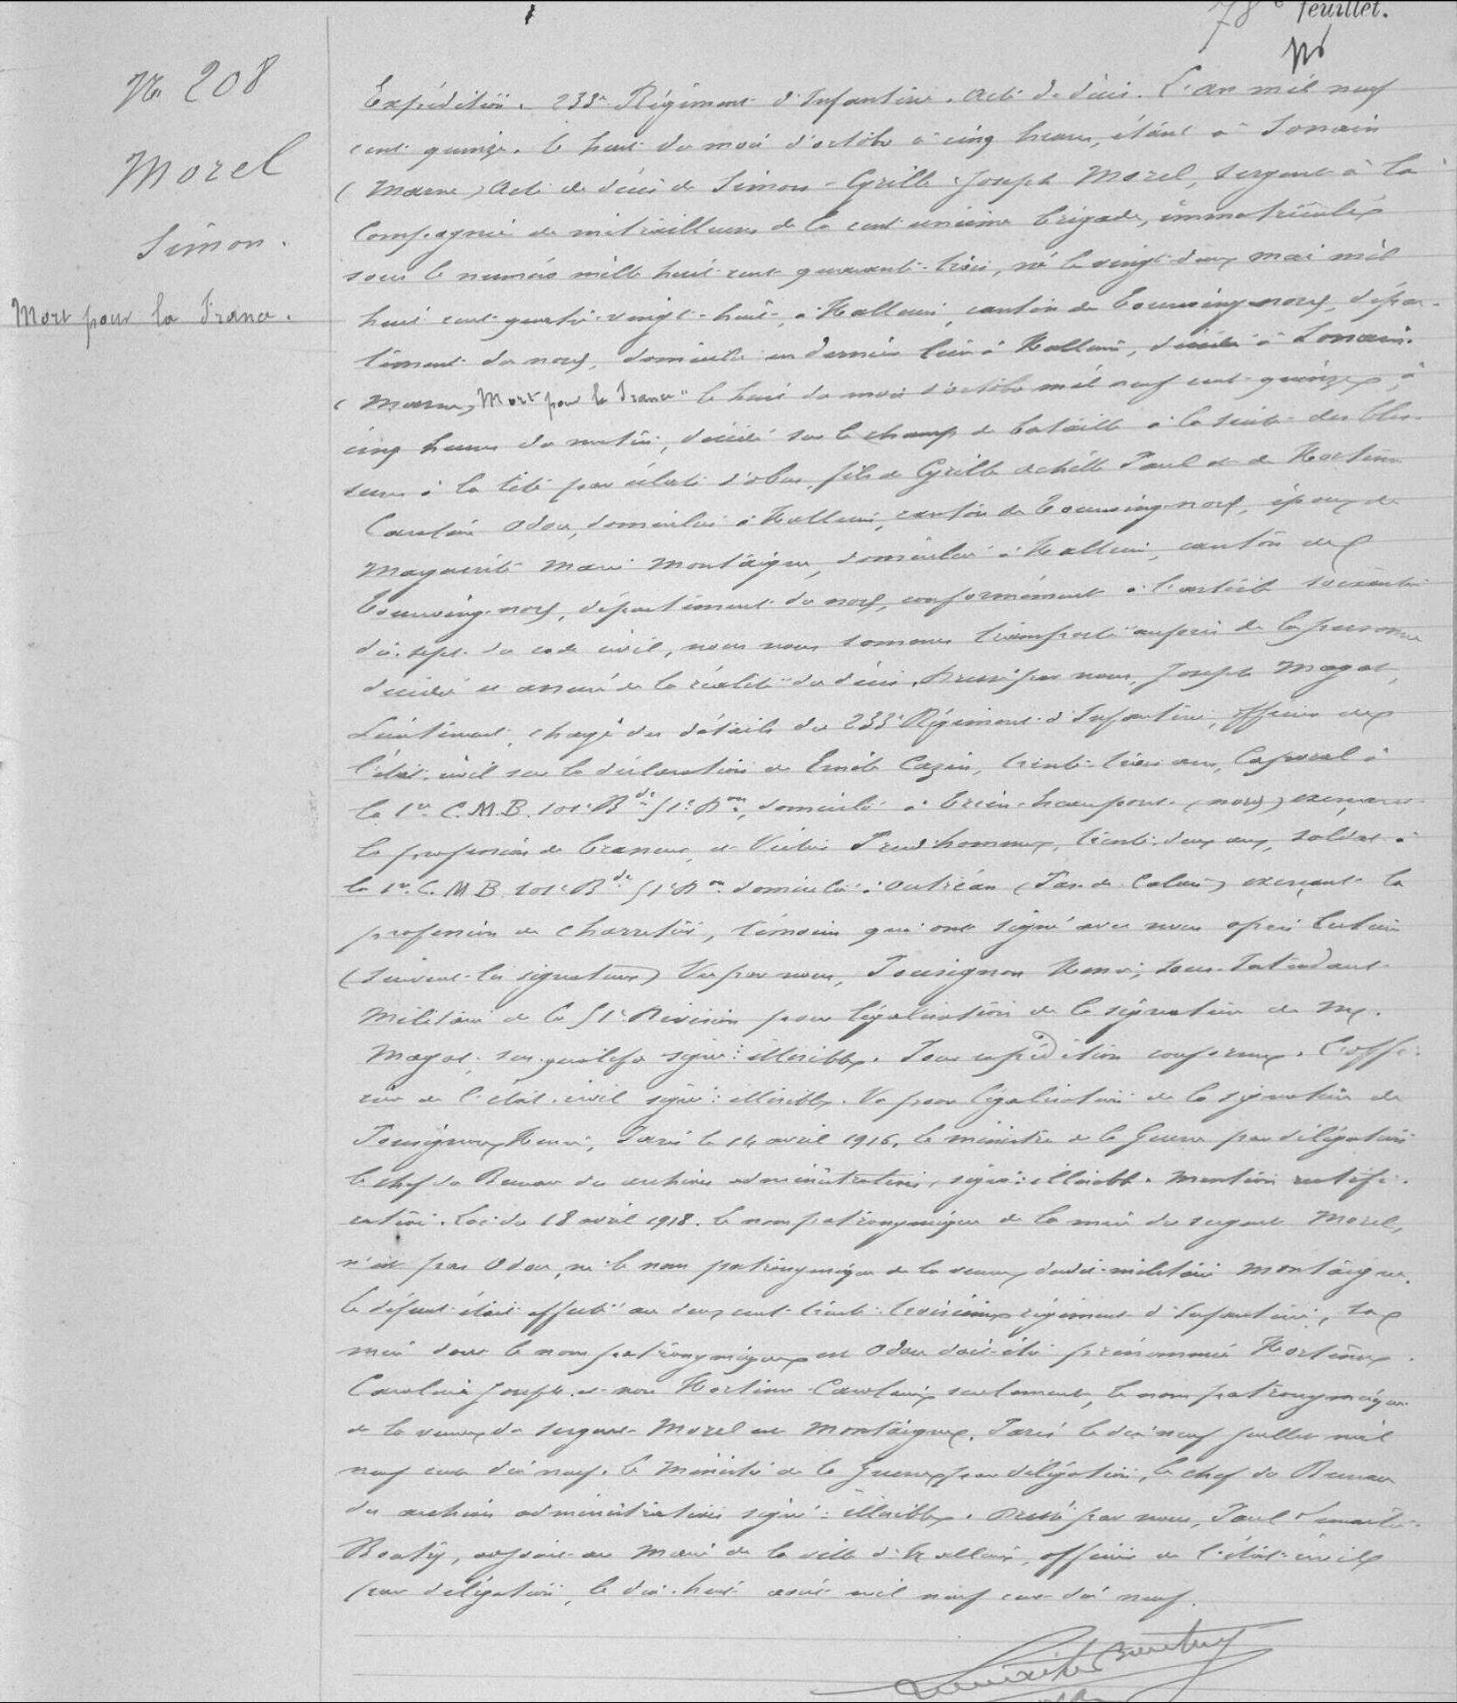 78e feuillet.
No 208
Morel
Simon.
Mort pour la France.
Expédition. 233e Régiment d'Infanterie. Acte de décès. L'an mil neuf
cent quinze, le huit du mois d'octobre à cinq heures, étant à Somain
(Marne) Acte de décès de Simon Cyrille Joseph Morel, sergent à la
Compagnie de mitrailleuses de la cent unième brigade, immatriculé
sous le numéro mille huit cent quarante-trois, né le vingt deux mai mil
huit cent quatre-vingt-huit, à Halluin, canton de Tourcoing-nord, dépar-
tement du nord, domicilié en dernier lieu à Halluin, décédé à Somain
(Marne) "Mort pour la France" le huit du mois d'octobre mil neuf cent quinze, à
cinq heures du matin, décédé sur le champ de bataille à la suite des bles-
sures à la tête par éclats d'obus, fils de Cyrille Achille Paul et de Hortense
Caroline Odou, domiciliés à Halluin, canton de Tourcoing-nord, époux de
Marguerite Marie Montaigne, domiciliée à Halluin, canton de
Tourcoing-nord, département du nord, conformément à l'article soixante
dix-sept du code civil, nous nous sommes transporté auprès de la personne
décédée et assuré de la réalité du décès. Dressé par nous, Joseph Magat,
Lieutenant, chargé des détails du 233e Régiment d'Infanterie, officier de
l'état-civil sur la déclaration de Emile Cazin, trente-trois ans, Caporal à
la 1re C.M.B. 101e Bde 51e Don, domicilié à (nord) exerçant
la profession de et Victor Prudhomme, trente-deux ans, soldat à
la 1re C.M.B. 101e Bde 51e Don domicilié à Outréau (Pas-de-Calais) exerçant la
profession de charretier, témoins qui ont signé avec nous après lecture
(Suivent les signatures) Vu par nous, Henri, Sous-Intendant
Militaire de la 51e Division pour légalisation de la signature de Mr.
Magat, sus-qualifié signé: illisible. Pour expédition conforme. L'offi-
cier de l'état-civil signé: illisible. Vu pour légalisation de la signature de
Henri, Paris le 14 avril 1916, le ministre de la Guerre par délégation
le chef du Bureau des archives administratives, signé: illisible. Mention rectifi-
cative. Loi du 18 avril 1918. le nom patronymique de la mère du sergent Morel,
n'est pas Odou, ni le nom patronymique de la veuve dudit militaire Montaigne.
le défunt était affecté au deux cent trente-troisième régiment d'Infanterie, sa
mère dont le nom patronymique est Odou doit être prénommée Hortense
Caroline Joseph et non Hortense Caroline seulement, le nom patronymique
de la veuve du sergent Morel est Montaigne. Paris le dix neuf juillet mil
neuf cent dix neuf. le Ministre de la Guerre, par délégation, le chef du Bureau
des archives administratives signé: illisible. Dressé par nous, Paul
adjoint au Maire de la ville d'Halluin, officier de l'état-civil
par délégation, le dix-huit août mil neuf cent dix neuf.